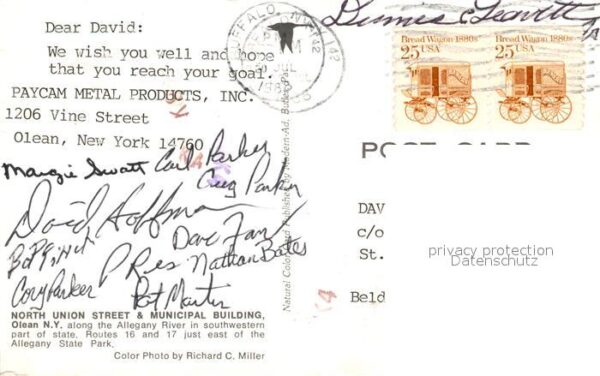 Dear David:
We wish you well and hope
that you reach your goal.
PAYCAM METAL PRODUCTS, INC.
1206 Vine Street
Olean, New York 14760
Margie Swatt Carl Parker
Greg Parker
David Hoffman
Dave
Nathan Bates
Cory Parker
Pat Martin
NORTH UNION STREET & MUNICIPAL BUILDING,
Olean N.Y. along the Allegany River in southwestern
part of state, Routes 16 and 17 just east of the
Allegany State Park.
Color Photo by Richard C. Miller
BUFFALO, NY 142
Natural Color Card Published by Modern-Ad, Butler, Pa.
Dennis C Leavitt
Bread Wagon 1880s
25 USA
Bread Wagon 1880s
25 USA
POST CARD
DAV
c/o
St.
Beld
privacy protection
Datenschutz